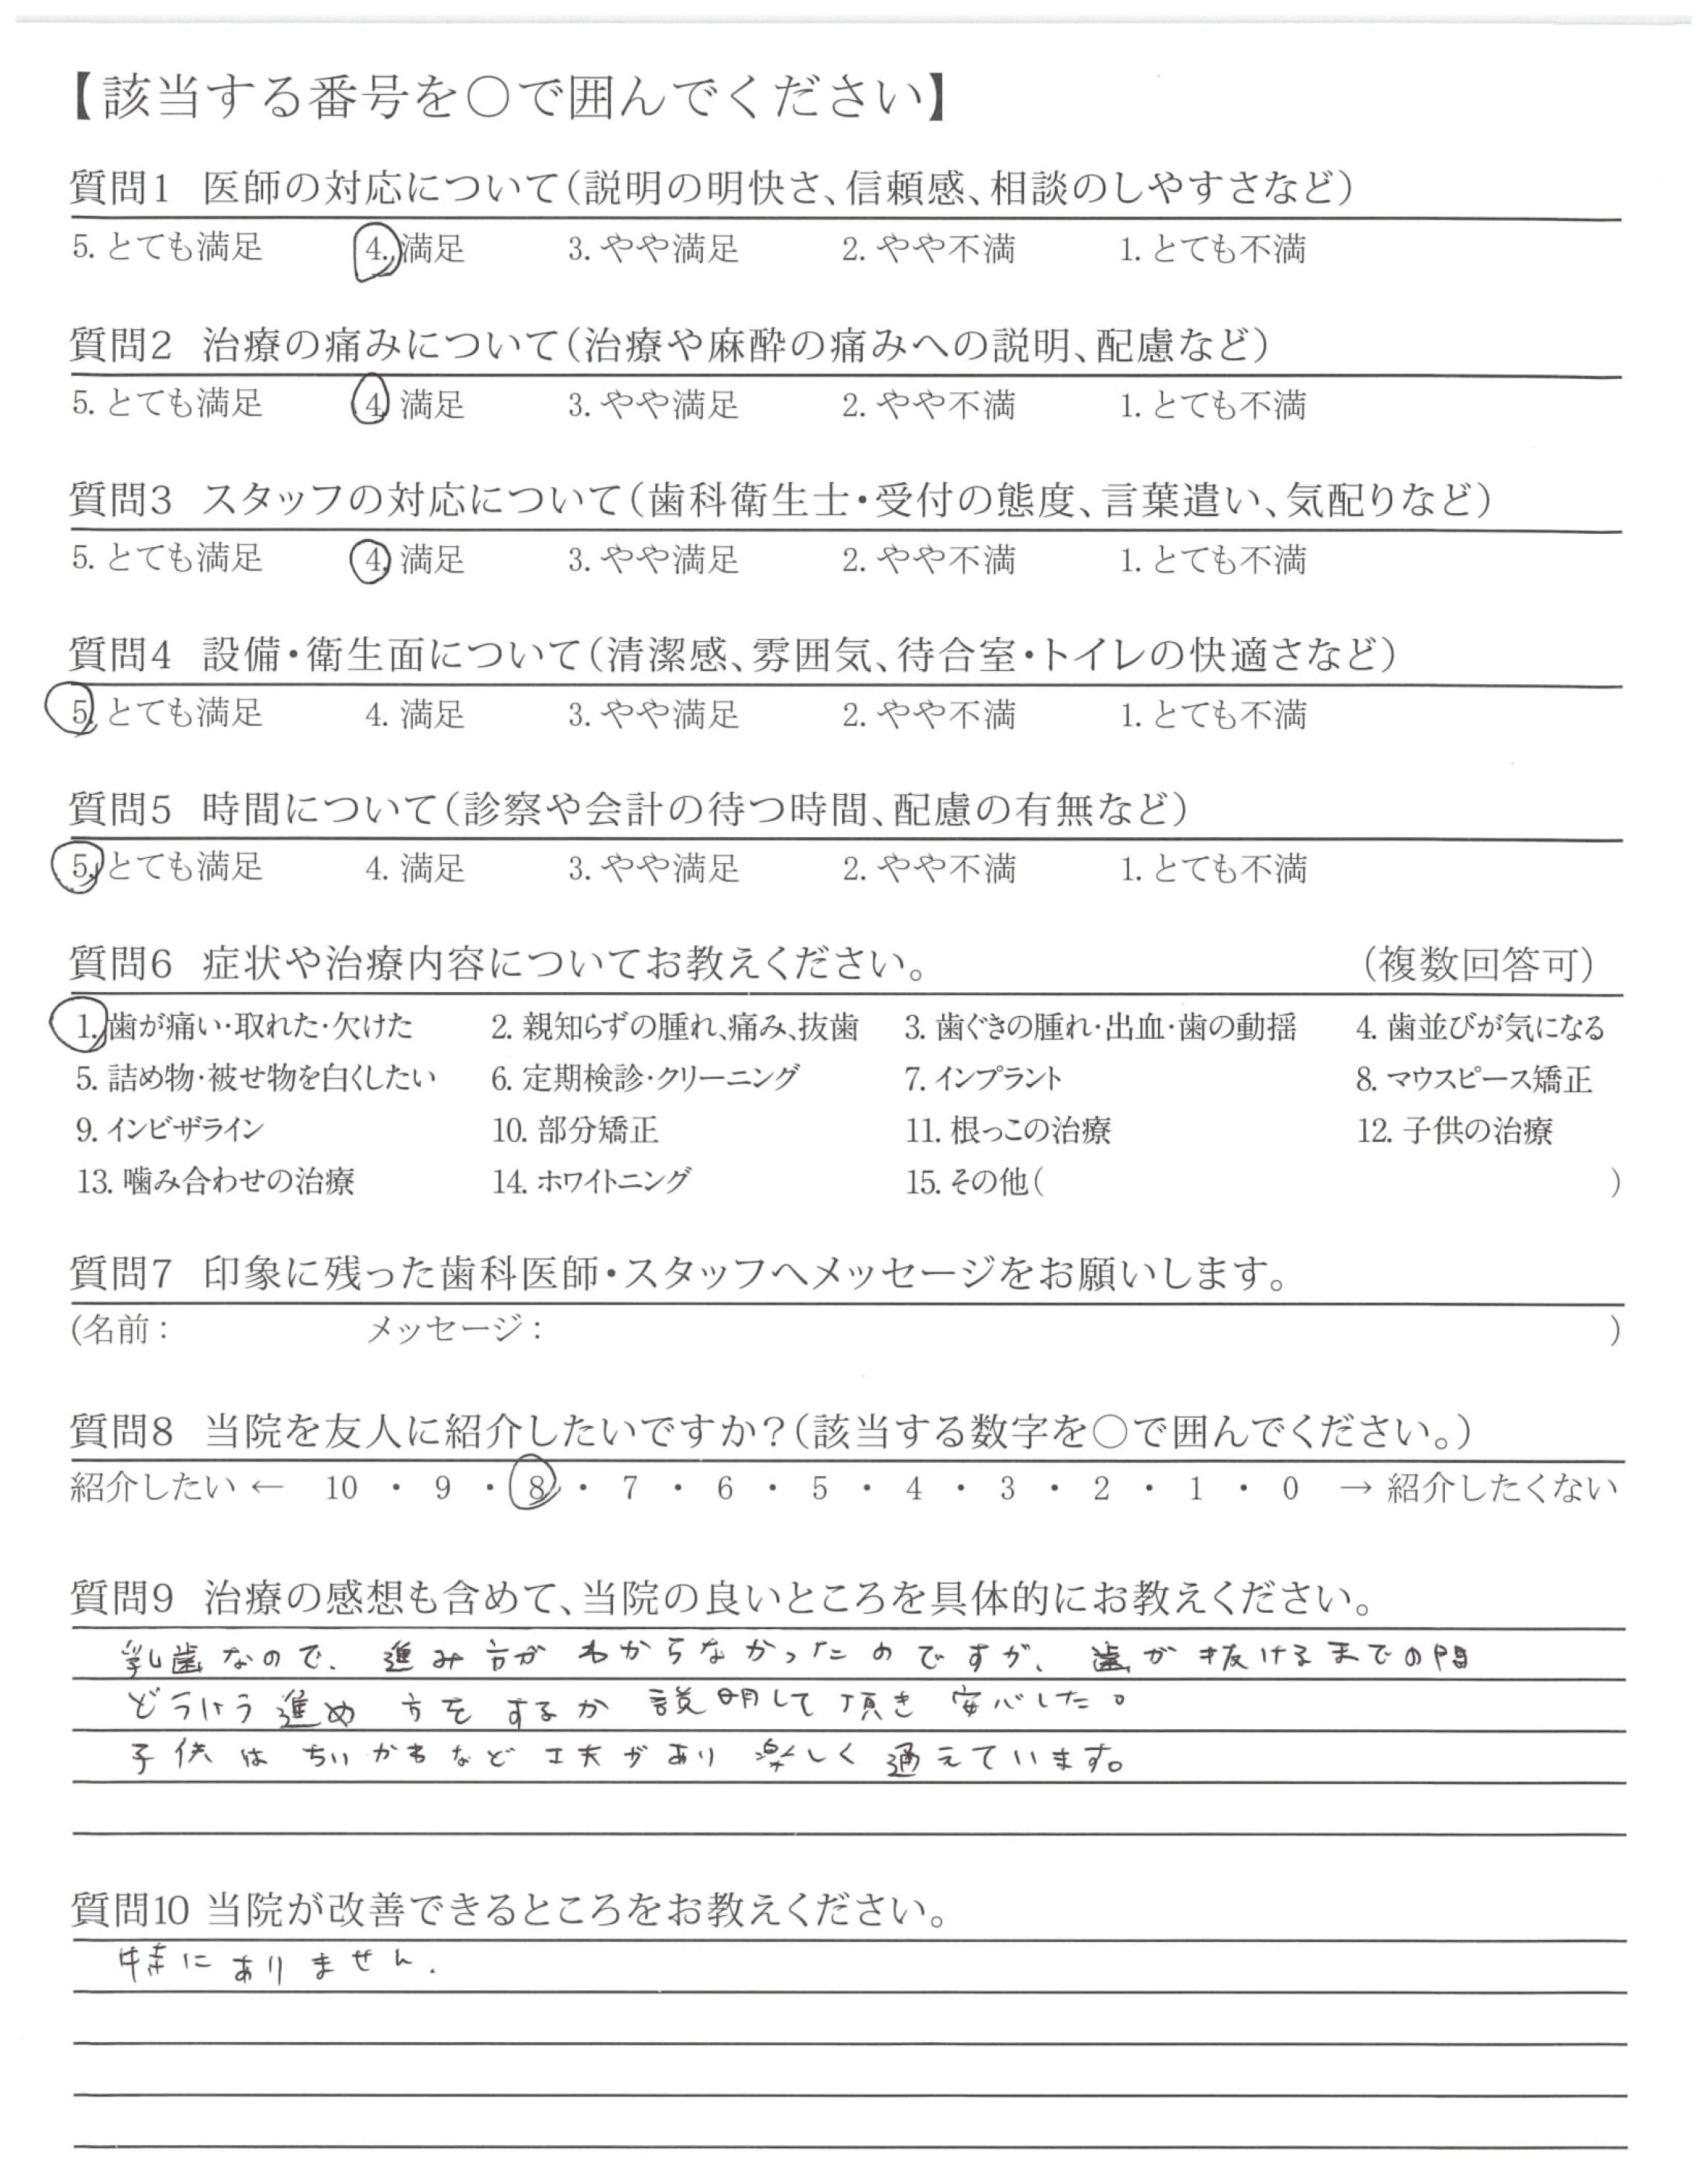 【該当する番号を○で囲んでください】
質問1 医師の対応について(説明の明快さ、信頼感、相談のしやすさなど)
5. とても満足 4. 満足 3. やや満足 2. やや不満 1. とても不満
質問2 治療の痛みについて(治療や麻酔の痛みへの説明、配慮など)
5. とても満足 4. 満足 3. やや満足 2. やや不満 1. とても不満
質問3 スタッフの対応について(歯科衛生士・受付の態度、言葉遣い、気配りなど)
5. とても満足 4. 満足 3. やや満足 2. やや不満 1. とても不満
質問4 設備・衛生面について(清潔感、雰囲気、待合室・トイレの快適さなど)
5. とても満足 4. 満足 3. やや満足 2. やや不満 1. とても不満
質問5 時間について(診察や会計の待つ時間、配慮の有無など)
5. とても満足 4. 満足 3. やや満足 2. やや不満 1. とても不満
質問6 症状や治療内容についてお教えください。 (複数回答可)
1. 歯が痛い・取れた・欠けた 2. 親知らずの腫れ、痛み、抜歯 3. 歯ぐきの腫れ・出血・歯の動揺 4. 歯並びが気になる
5. 詰め物・被せ物を白くしたい 6. 定期検診・クリーニング 7. インプラント 8. マウスピース矯正
9. インビザライン 10. 部分矯正 11. 根っこの治療 12. 子供の治療
13. 噛み合わせの治療 14. ホワイトニング 15. その他( )
質問7 印象に残った歯科医師・スタッフへメッセージをお願いします。
(名前： メッセージ： )
質問8 当院を友人に紹介したいですか？(該当する数字を○で囲んでください。)
紹介したい ← 10 ・ 9 ・ 8 ・ 7 ・ 6 ・ 5 ・ 4 ・ 3 ・ 2 ・ 1 ・ 0 → 紹介したくない
質問9 治療の感想も含めて、当院の良いところを具体的にお教えください。
乳歯なので、進み方がわからなかったのですが、歯が抜けるまでの間
どういう進め方をするか説明して頂き安心した。
子供はちいかわなど工夫があり楽しく通えています。
質問10 当院が改善できるところをお教えください。
特にありません.